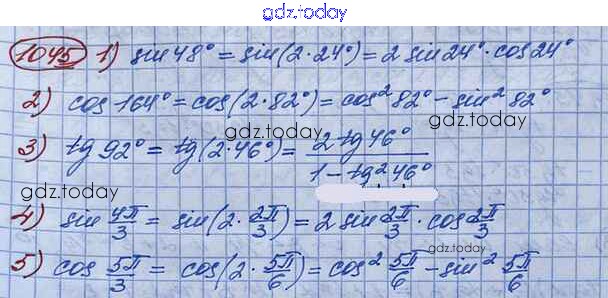 gdz.today
1045 1) sin 48° = sin(2·24°) = 2 sin 24°·cos 24°
2) cos 164° = cos(2·82°) = cos² 82° - sin² 82°
gdz.today
gdz.today
3) tg 92° = tg(2·46°) = 2 tg 46° / 1 - tg² 46°
gdz.today
4) sin 4π/3 = sin(2·2π/3) = 2 sin 2π/3 · cos 2π/3
gdz.today
5) cos 5π/3 = cos(2·5π/6) = cos² 5π/6 - sin² 5π/6